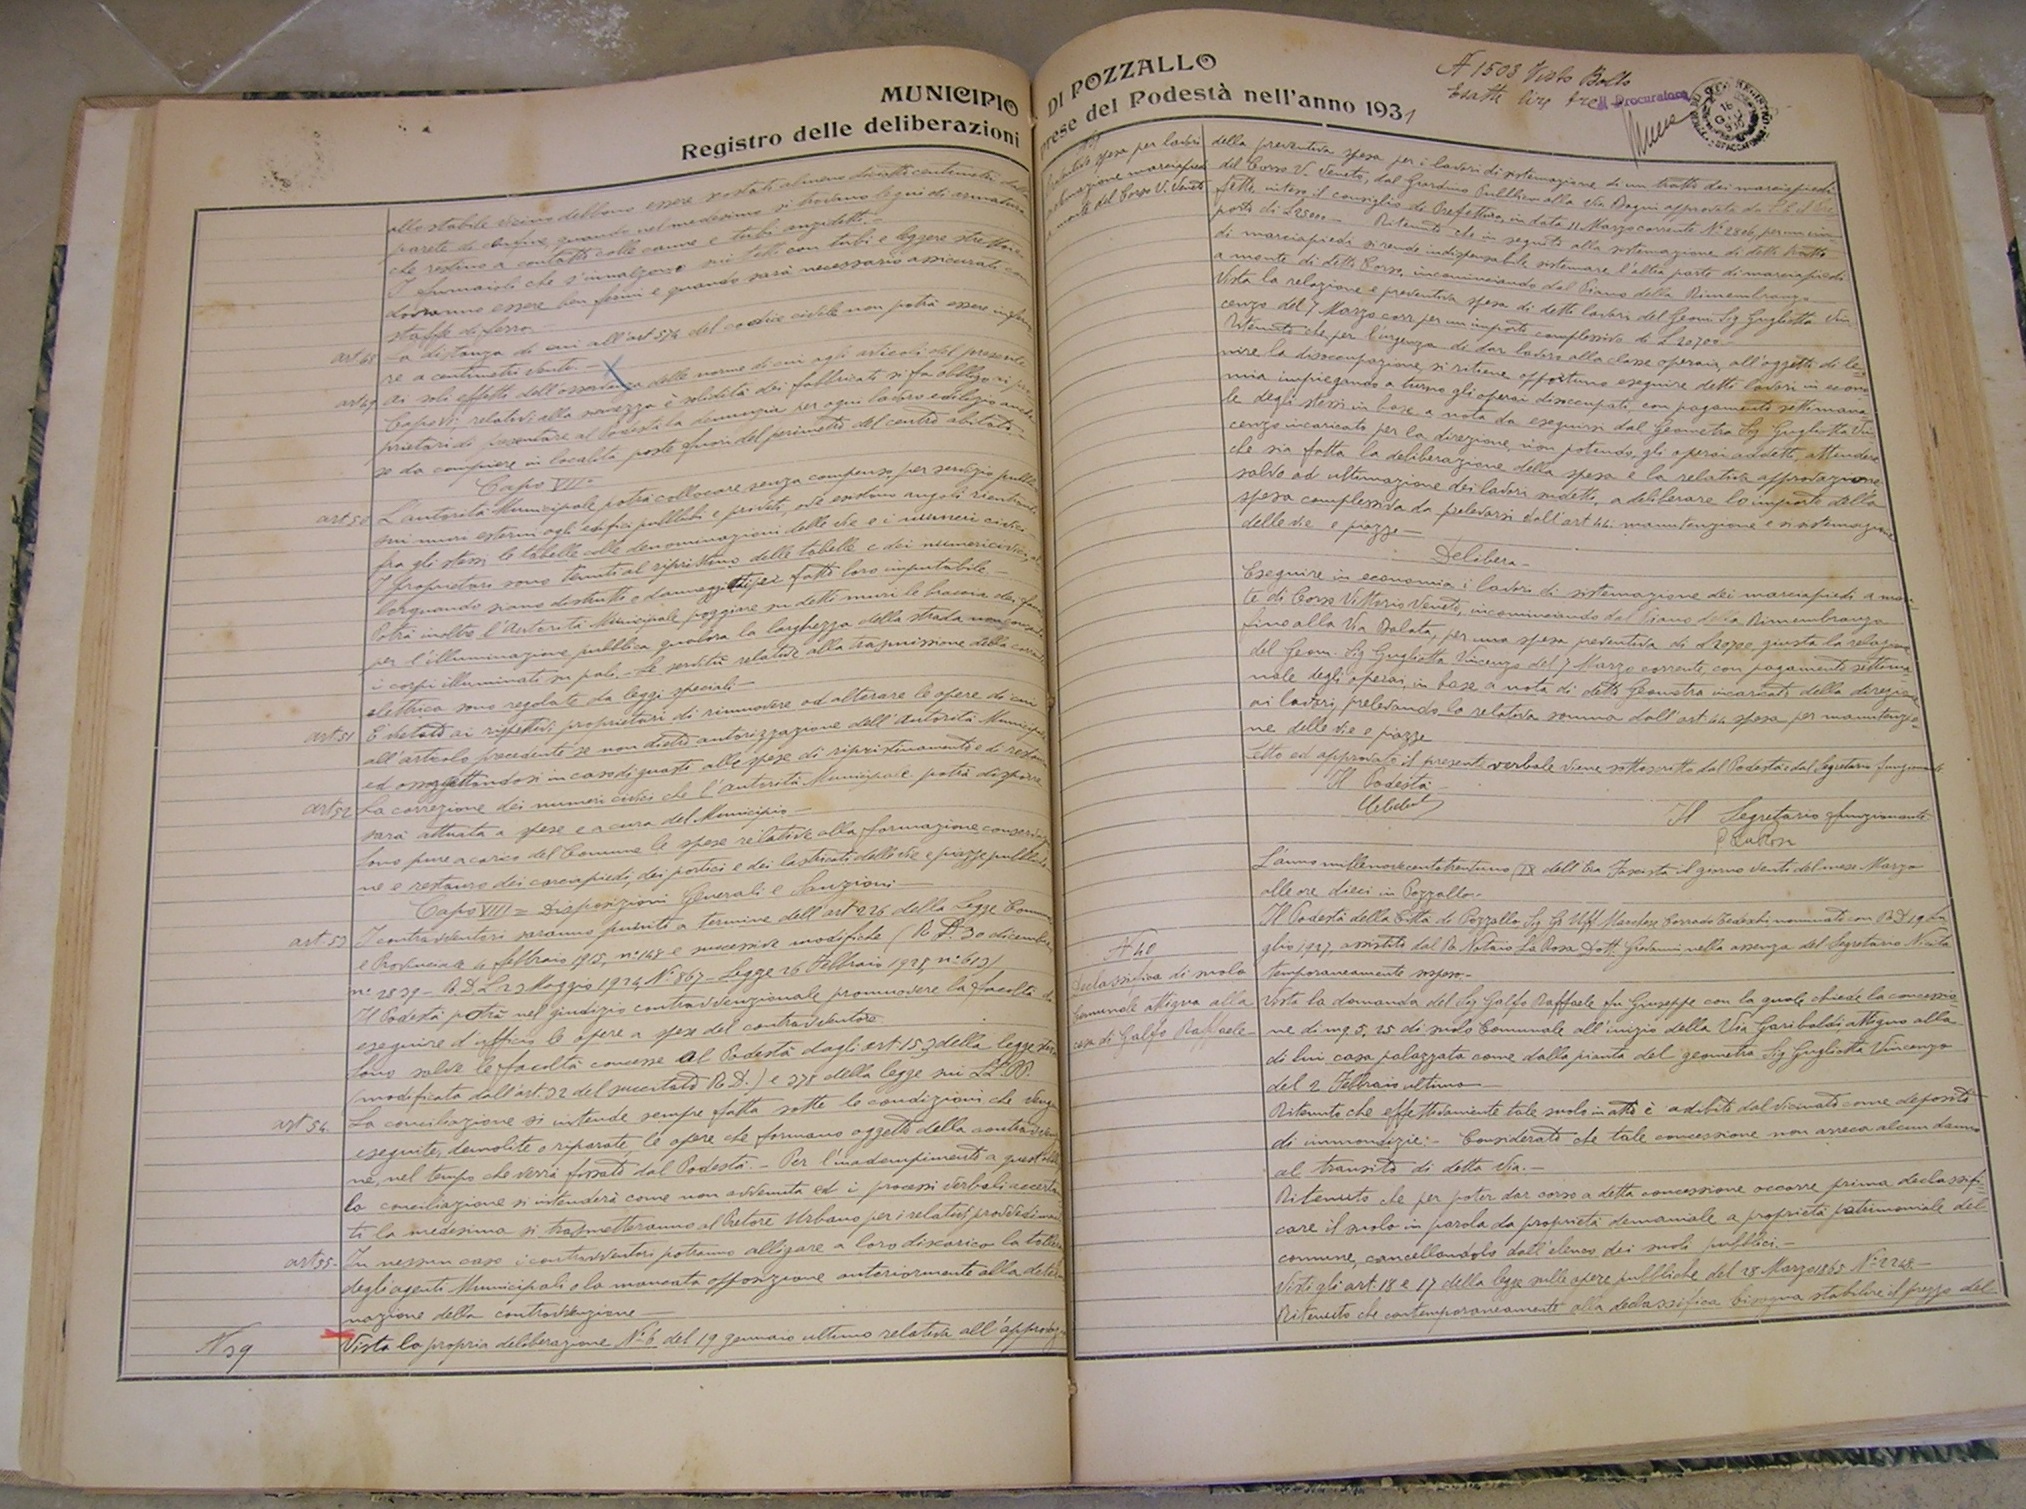 MUNICIPIO
Registro delle deliberazioni
allo stabile vicino debbono essere
parete di confine, quando nel medesimo si trovano legni di armatura
che restino a contatto colle canne e tubi anzidetti.-
I fumaioli che s'innalzano sui tetti con tubi e leggere strutture
dovranno essere ben fermi e quando sarà necessario assicurati con
staffe di ferro.-
art 48 La distanza di cui all'art 574 del codice civile non potrà essere inferio
re a centimetri venti.-
art 49 Ai soli effetti dell'osservanza delle norme di cui agli articoli del presente
Capo VI, relativi alla sicurezza e solidità dei fabbricati si fa obbligo ai pro
prietari di presentare al Podestà la denunzia per ogni lavoro edilizio anche
se da compiere in località poste fuori del perimetro del centro abitato.-
Capo VII=
art 50 L'autorità Municipale potrà collocare senza compenso, per servizio pubbli
sui muri esterni agli edifici pubblici e privati, ove esistono angoli rientranti
fra gli stessi, le tabelle colle denominazioni delle vie e i numeri civici
I proprietari sono tenuti al ripristino delle tabelle e dei numeri civici, al
lorquando siano distrutti o danneggiati per fatto loro imputabile.-
Potrà inoltre l'Autorità Municipale poggiare su detti muri le braccia dei fana
per l'illuminazione pubblica qualora la larghezza della strada non consenta
i corpi illuminati su pali.- Le servitù relative alla trasmissione della corrente
elettrica sono regolate da leggi speciali-
art. 51 È vietato ai rispettivi proprietari di rimuovere od alterare le opere di cui
all'articolo precedente se non dietro autorizzazione dell'Autorità Municipale
ed assoggettandosi in caso di guasti alle spese di ripristinamento e di restauro
art 52 La correzione dei numeri civici che l'autorità Municipale potrà disporre
sarà attuata a spese e a cura del Municipio-
Sono pure a carico del Comune le spese relative alla formazione conservazio
ne e restauro dei marciapiedi, dei portici e dei lastricati delle vie e piazze pubbliche
Capo VIII = Disposizioni Generali e Sanzioni-
art. 53 I contravventori saranno puniti a termine dell'art 226 della Legge Comun
e Provinciale 4 febbraio 1915, n° 148 e successive modifiche (R. D. 30 dicembre
n° 2839- R.D.L. 23 Maggio 1924 N° 867- Legge 26 Febbraio 1928, n° 613)
Il Podestà potrà nel giudizio contravvenzionale promuovere la facoltà di
eseguire d'ufficio le opere a spese del contravventore
Sono salve le facoltà concesse al Podestà dagli art. 153 della legge stessa
(modificata dall'art. 32 del succitato R.D.) e 378 della legge sui LL. PP.
art 54. La conciliazione si intende sempre fatta sotto le condizioni che venga
eseguite, demolite o riparate, le opere che formano oggetto della contravvenzio
ne, nel tempo che verrà fissato dal Podestà.- Per l'inadempimento a quest'
la conciliazione si intenderà come non avvenuta ed i processi verbali accerta
ti la medesima si trasmetteranno al Pretore Urbano per i relativi provvedimenti
art 55- In nessun caso i contravventori potranno allegare a loro discarico la tolleran
degli agenti Municipali o la mancata opposizione anteriormente alla determi
nazione della contravvenzione-
N 39 Vista la propria deliberazione N° 6 del 19 gennaio ultimo relativa all'approvaz
DI POZZALLO
prese del Podestà nell'anno 1931
N 1503 Visto Bollo
Esatte lire tre
Il Procuratore
Preventiva spesa per lavori
sistemazione marciapiedi
a monte del Corso V. Veneto
della preventiva spesa per i lavori di sistemazione di un tratto dei marciapiedi
del Corso V. Veneto, dal Giardino Pubblico alla Via Dogni approvata da S.E. il Pre
fetto, inteso il consiglio di Prefettura, in data 11 Marzo corrente N° 2806, per un im
porto di £ 25000- Ritenuto che in seguito alla sistemazione di detto tratto
di marciapiedi si rende indispensabile sistemare l'altra parte di marciapiedi
a monte di detto Corso, incominciando dal Piano della Rimembranza
Vista la relazione e preventiva spesa di detti lavori del Geom. Sig Guglietta Vin
cenzo del 7 Marzo corr. per un importo complessivo di £ 20700-
Ritenuto che, per l'urgenza di dar lavoro alla classe operaia, all'oggetto di le=
nire la disoccupazione, si ritiene opportuno eseguire detti lavori in econo
mia impiegando a turno gli operai disoccupati, con pagamento settimana=
le degli stessi in base a nota da eseguirsi dal Geometra Sig. Guglietta Vin
cenzo incaricato per la direzione, non potendo, gli operai addetti, attendere
che sia fatta la deliberazione della spesa e la relativa approvazione
salvo ad ultimazione dei lavori suddetti, a deliberare lo importo della
spesa complessiva da prelevarsi dall'art 44. manutenzione e sistemazione
delle vie e piazze-
Delibera-
Eseguire in economia i lavori di sistemazione dei marciapiedi a mon=
te di Corso Vittorio Veneto, incominciando dal Piano della Rimembranza
fino alla Via Balata, per una spesa preventiva di £ 20700, giusta la relazione
del Geom. Sig Guglietta Vincenzo del 7 Marzo corrente, con pagamento settima
nale degli operai, in base a nota di detto Geometra incaricato della direzione
ai lavori, prelevando la relativa somma dall'art. 44 spesa per manutenzio=
ne delle vie e piazze
Letto ed approvato il presente verbale viene sottoscritto dal Podestà e dal Segretario funzionante
Il Podestà
Il Segretario funzionante
G LaRosa
L'anno millenovecentotrentuno (IX dell'Era Fascista il giorno venti del mese Marzo
alle ore dieci in Pozzallo.-
Il Podestà della Città di Pozzallo Sig. Gr. Uff. Marchese Corrado Tedeschi nominato con R.D. 19 lu
glio 1927, assistito dal R. Notaio La Rosa Dott. Giovanni nella assenza del Segretario Nicita
temporaneamente sospeso.-
N 40
Declassifica di suolo
Comunale attigua alla
casa di Galfo Raffaele-
Vista la domanda del Sig Galfo Raffaele fu Giuseppe con la quale chiede la concessio=
ne di mq. 5,25 di suolo Comunale all'inizio della Via Garibaldi, attiguo alla
di lui casa palazzata come dalla pianta del geometra Sig Guglietta Vincenzo
del 2 Febbraio ultimo-
Ritenuto che effettivamente tale suolo in atto è adibito dal vicinato come deposito
di immondizie:- Considerato che tale concessione non arreca alcun danno
al transito di detta Via.-
Ritenuto che per poter dar corso a detta concessione occorre prima declassifi=
care il suolo in parola da proprietà demaniale a proprietà patrimoniale del
comune, cancellandolo dall'elenco dei suoli pubblici.-
Visti gli art. 18 e 17 della legge sulle opere pubbliche del 28 Marzo 1865 N° 2248-
Ritenuto che contemporaneamente alla declassifica bisogna stabilire il prezzo del